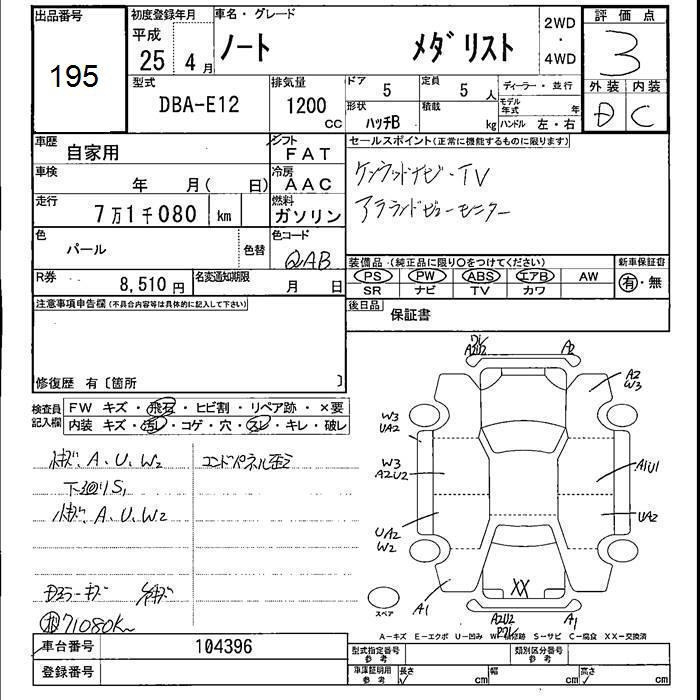 出品番号
195
初度登録年月
平成
25 4 月
車名・グレード
ノート メダリスト
2WD
・
4WD
評価点
3
外装 内装
D C
型式
DBA-E12
排気量
1200
CC
ドア
5
定員
5 人
ディーラー・並行
モデル年式 年
形状
ハッチB
積載
kg
ハンドル 左・右
車歴
自家用
シフト
FAT
セールスポイント(正常に機能するものに限ります)
ケンウッドナビ・TV
アラウンドビューモニター
車検
年 月( 日)
冷房
AAC
走行
7万1千080 km
燃料
ガソリン
色
パール
色替
色コード
QAB
装備品・(純正品に限り○をつけてください)
PS PW ABS エアB AW
SR ナビ TV カワ
新車保証書
有・無
R券
8,510 円
名変通知期限
月 日
後日品
保証書
注意事項申告欄(不具合内容等は具体的に記入して下さい)
修復歴 有〔箇所 〕
検査員記入欄
FW キズ・飛石・ヒビ割・リペア跡・×要
内装 キズ・汚レ・コゲ・穴・スレ・キレ・破レ
小キズ、A、U、W2
エンドパネル歪ミ
下廻リS1
小キズ、A、U、W2
71080Km
A2
A2
W3
W3
UA2
W3
A2U2
A1U1
UA2
W2
UA2
XX
A1
A2U2
A1
スペア
A-キズ E-エクボ U-凹み W-補修跡 S-サビ C-腐食 XX-交換済
車台番号
104396
登録番号
型式指定番号
参考
類別区分番号
参考
車庫証明用
参考
長さ cm
幅 cm
高さ cm